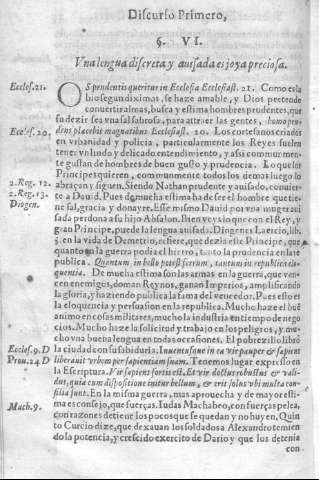 Discurso Primero,
§. VI.
Vna lengua discreta y auisada es joya preciosa.
Eccles. 21.
OS prudentis queritur in Ecclesia Ecclesiast. 21. Como esta
bio segundixímos, se haze amable, y Dios pretende
conuertir almas, busca y estima hombres prudentes, que
su dezir sea vna sal sabrosa, para atraer las gentes, homo pru
Eccles. 20.
dens placebit magnatibus Ecclesiast. 20. Los cortesanos criados
en vrbanidad y policia, particularmente los Reyes suelen
tener vn lindo y delicado entendimiento, y assi communmen-
te gustan de hombres de buen gusto y prudencia. Lo que los
Principes quieren, communmente todos los demas luego lo
2. Reg. 12.
abraçan y siguen. Siendo Nathan prudente y auisado, conuier
2. Reg. 13.
te a Dauid. Pues de mucha estima ha de ser el hombre que tie
Diogen.
ne sal, gracia y donayre. Esse mismo Dauid por vna muger aui
sada perdona a su hijo Absalon. Bien veys lo que con el Rey, y
gran Principe, puede la lengua auisada. Diogenes Laercio, lib.
5. en la vida de Demetrio, refiere, que dezia este Principe, que
quanto en la guerra podia el hierro, tanto la prudencia en la re
publica. Quantum in bello potest ferrum, tantum in republica elo-
quentia. De mucha estima son las armas en la guerra, que ven-
cen enemigos, doman Reynos, ganan Imperios, amplificando
la gloria, y haziendo publica la fama del vencedor. Pues esto es
la eloquencia y persuasion en la republica. Mucho haze el buē
animo en cosas militares, mucho la industria en tiempo de nego
cios. Mucho haze la solicitud y trabajo en los peligros, y mu-
cho vna buena lengua en todas occasiones. El pobrezillo libró
Eccles. 9. D
la ciudad con su sabiduria. Inuentusque in ea vir pauper & sapiens
Prou. 24. D
liberauit vrbem per sapientiam suam. Tenemos lugar expresso en
la Escriptura. Vir sapiens fortis est. Et vir doctus robustus & vali-
dus, quia cum dispositione initur bellum, & erit salus vbi multa con-
silia sunt. En la misma guerra, mas aprouecha y de mayor esti-
Mach. 9.
ma es consejo, que fuerças. Iudas Machabeo, con fuerças pelea,
con razones detiene los pocos que se quedan y no huyen. Quin
to Curcio dize, que dexauan los soldados a Alexandro temien
do la potencia, y crescido exercito de Dario y que los detenia
con